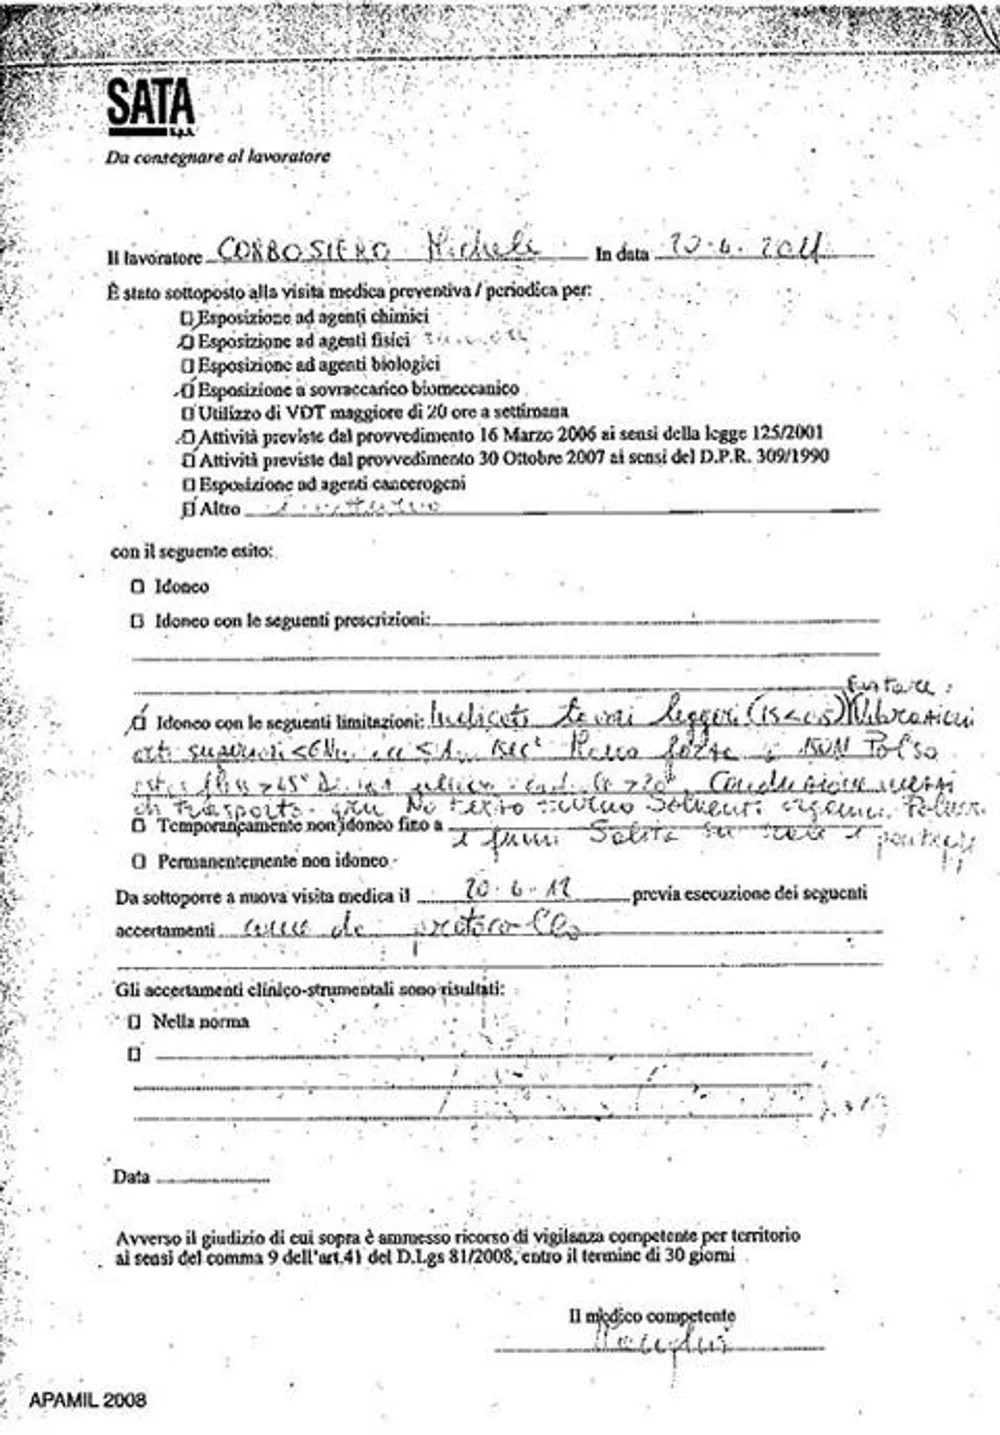 SATA
S.p.A.
Da consegnare al lavoratore
Il lavoratore CORBOSIERO Michele In data 20.6.2011
È stato sottoposto alla visita medica preventiva / periodica per:
Esposizione ad agenti chimici
Esposizione ad agenti fisici
Esposizione ad agenti biologici
Esposizione a sovraccarico biomeccanico
Utilizzo di VDT maggiore di 20 ore a settimana
Attività previste dal provvedimento 16 Marzo 2006 ai sensi della legge 125/2001
Attività previste dal provvedimento 30 Ottobre 2007 ai sensi del D.P.R. 309/1990
Esposizione ad agenti cancerogeni
Altro
con il seguente esito:
Idoneo
Idoneo con le seguenti prescrizioni:
Evitare:
Idoneo con le seguenti limitazioni: Indicati lavori leggeri Vibrazioni
arti superiori Polso
Conduzione mezzi
di trasporto No Solventi
Temporaneamente non idoneo fino a
e fumi Salita su scale e
Permanentemente non idoneo
Da sottoporre a nuova visita medica il 20.6.12 previa esecuzione dei seguenti
accertamenti come da protocollo
Gli accertamenti clinico-strumentali sono risultati:
Nella norma
Data
Avverso il giudizio di cui sopra è ammesso ricorso di vigilanza competente per territorio
ai sensi del comma 9 dell'art.41 del D.Lgs 81/2008, entro il termine di 30 giorni
Il medico competente
APAMIL 2008